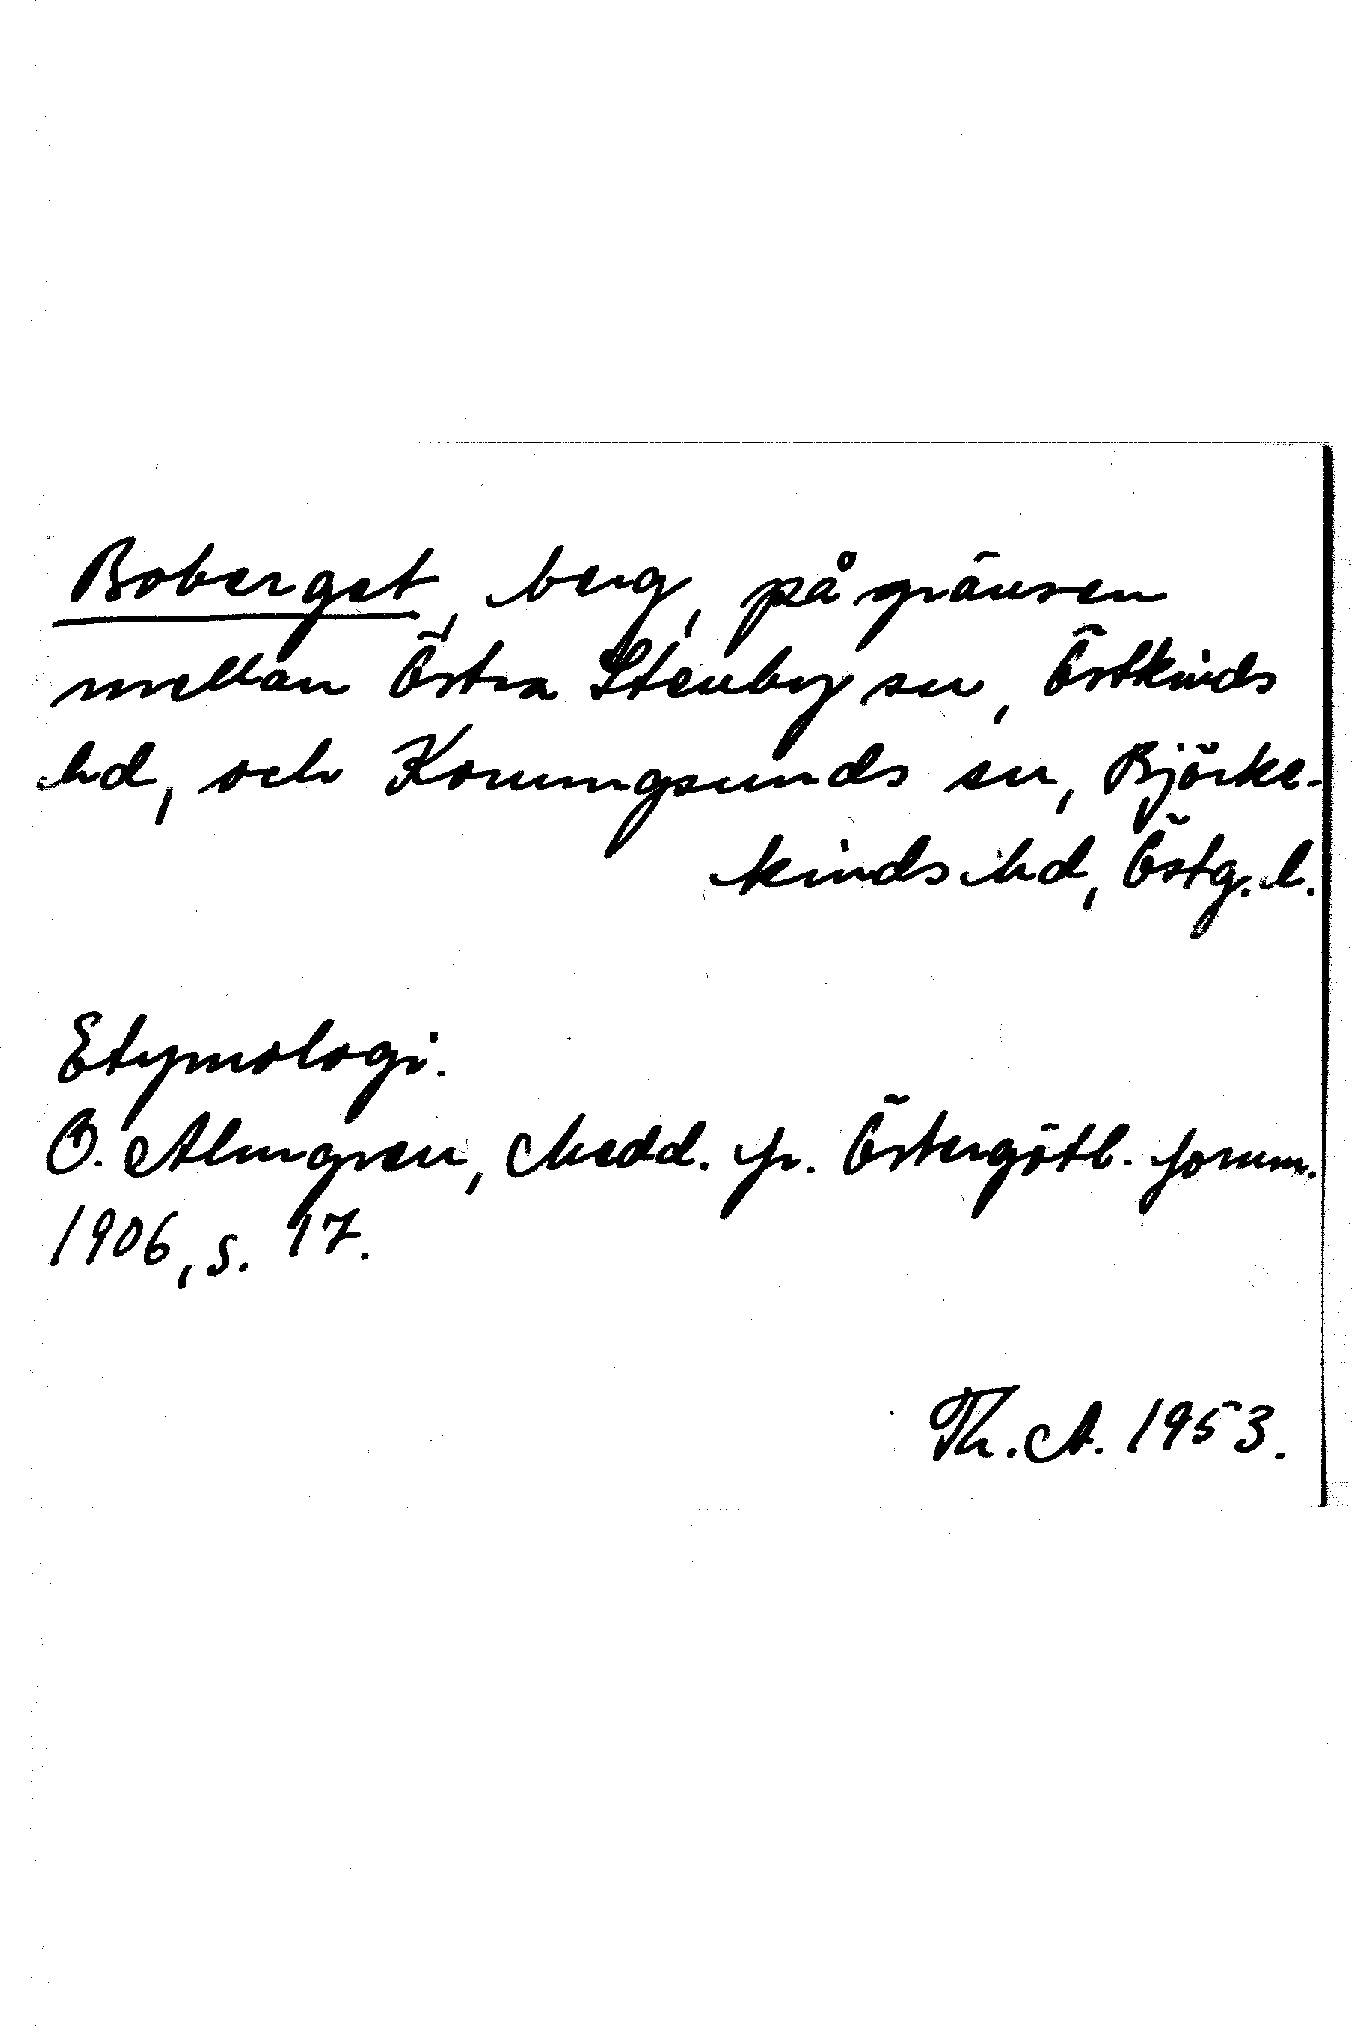 Boberget, berg, på gränsen
mellan Östra Stenby sn, Östkinds
hd, och Konungsunds sn, Björke-
kinds hd, Östg. l.
Etymologi.
O. Almgren, Medd. fr. Östergötl. fornm.
1906, s. 17.
Th. A. 1953.